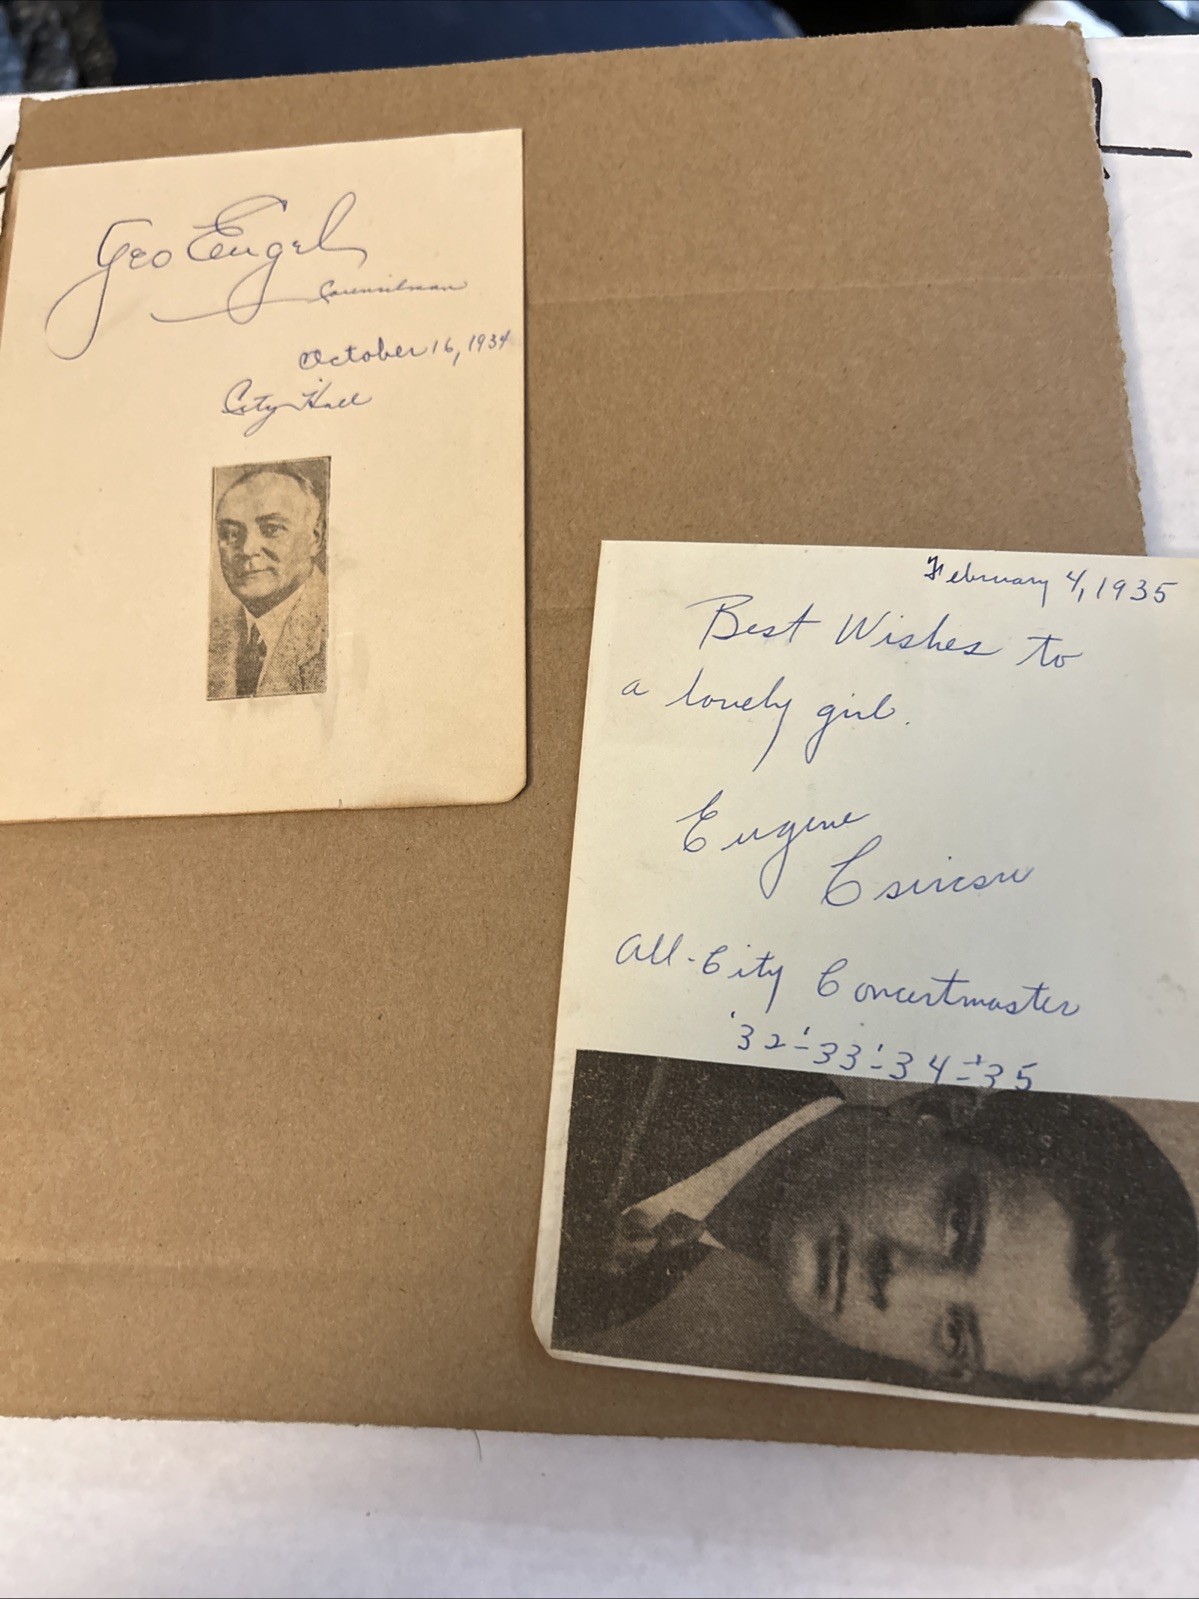 Geo Engel
Councilman
October 16, 1934
City Hall
February 4, 1935
Best Wishes to
a lovely girl.
Eugene
All-City Concertmaster
'32-'33-'34-'35